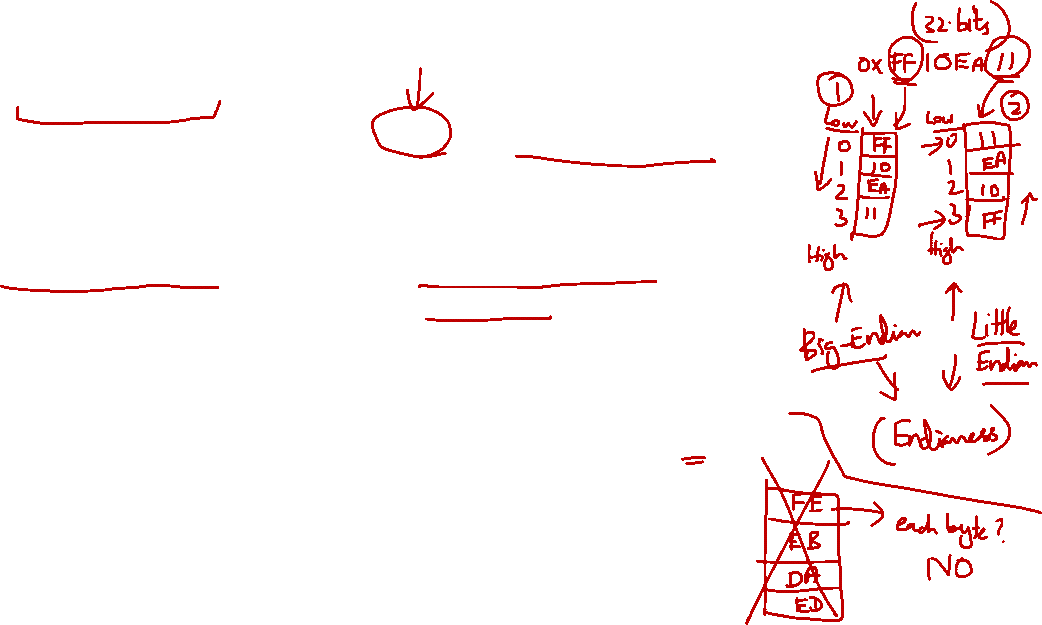 (32-bits)
0x FF 10 EA 11
1
2
Low
0 FF
1 10
2 EA
3 11
High
Low
0 11
1 EA
2 10
3 FF
High
Big-Endian
Little
Endian
(Endianness)
=
FE
EB
DA
ED
each byte?
NO